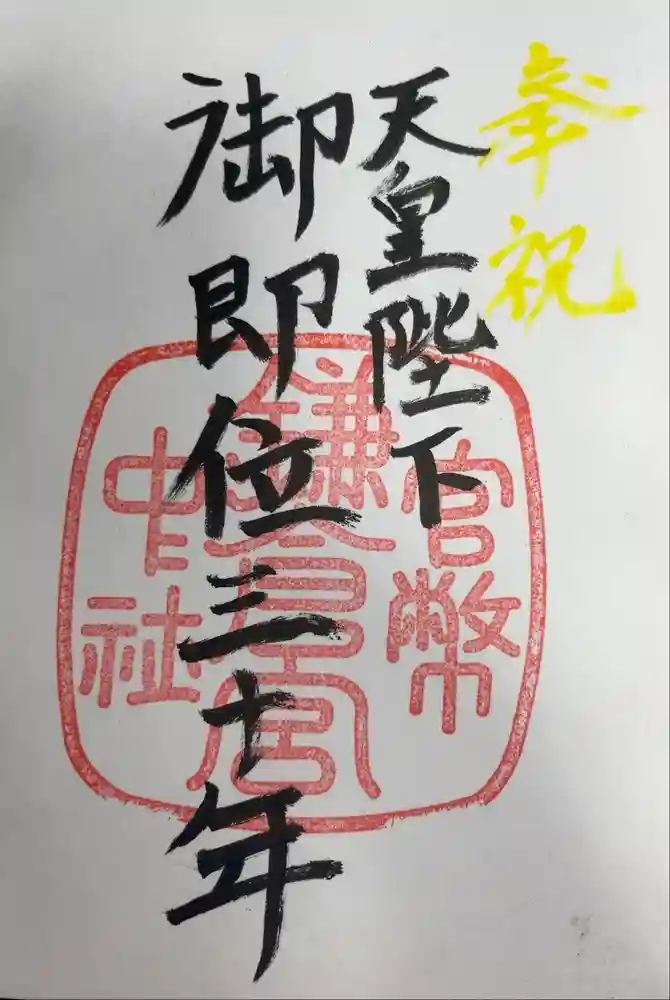 奉祝
天皇陛下
御即位三十年
官幣
鎌倉宮
中社